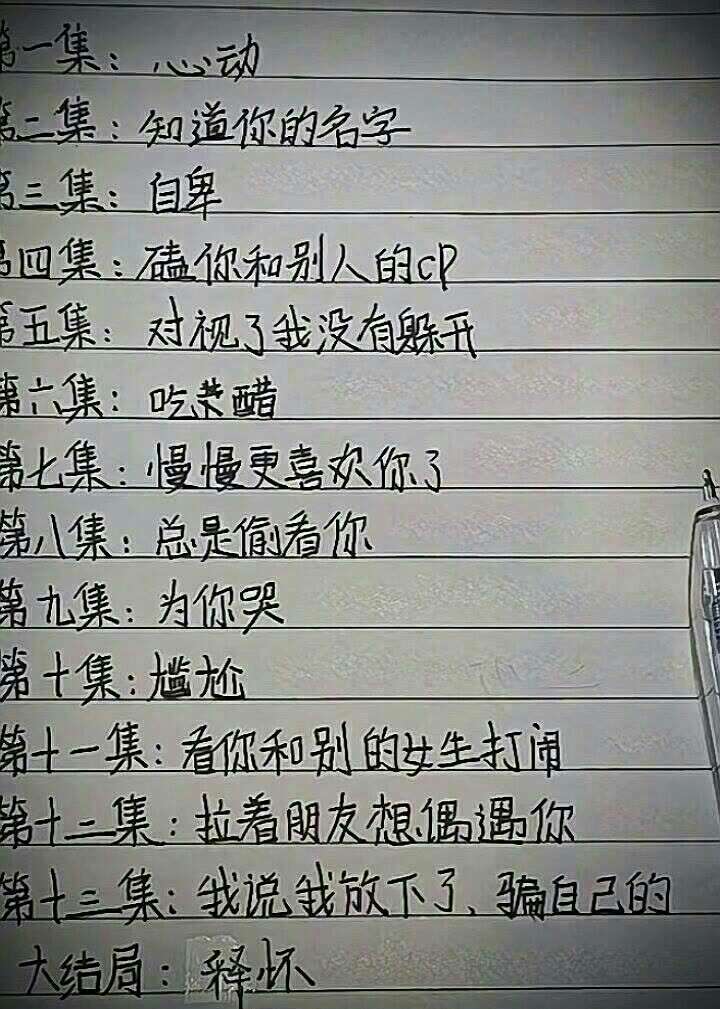 第一集：心动
第二集：知道你的名字
第三集：自卑
第四集：磕你和别人的cp
第五集：对视了我没有躲开
第六集：吃莫醋
第七集：慢慢更喜欢你了
第八集：总是偷看你
第九集：为你哭
第十集：尴尬
第十一集：看你和别的女生打闹
第十二集：拉着朋友想偶遇你
第十三集：我说我放下了、骗自己的
大结局：释怀